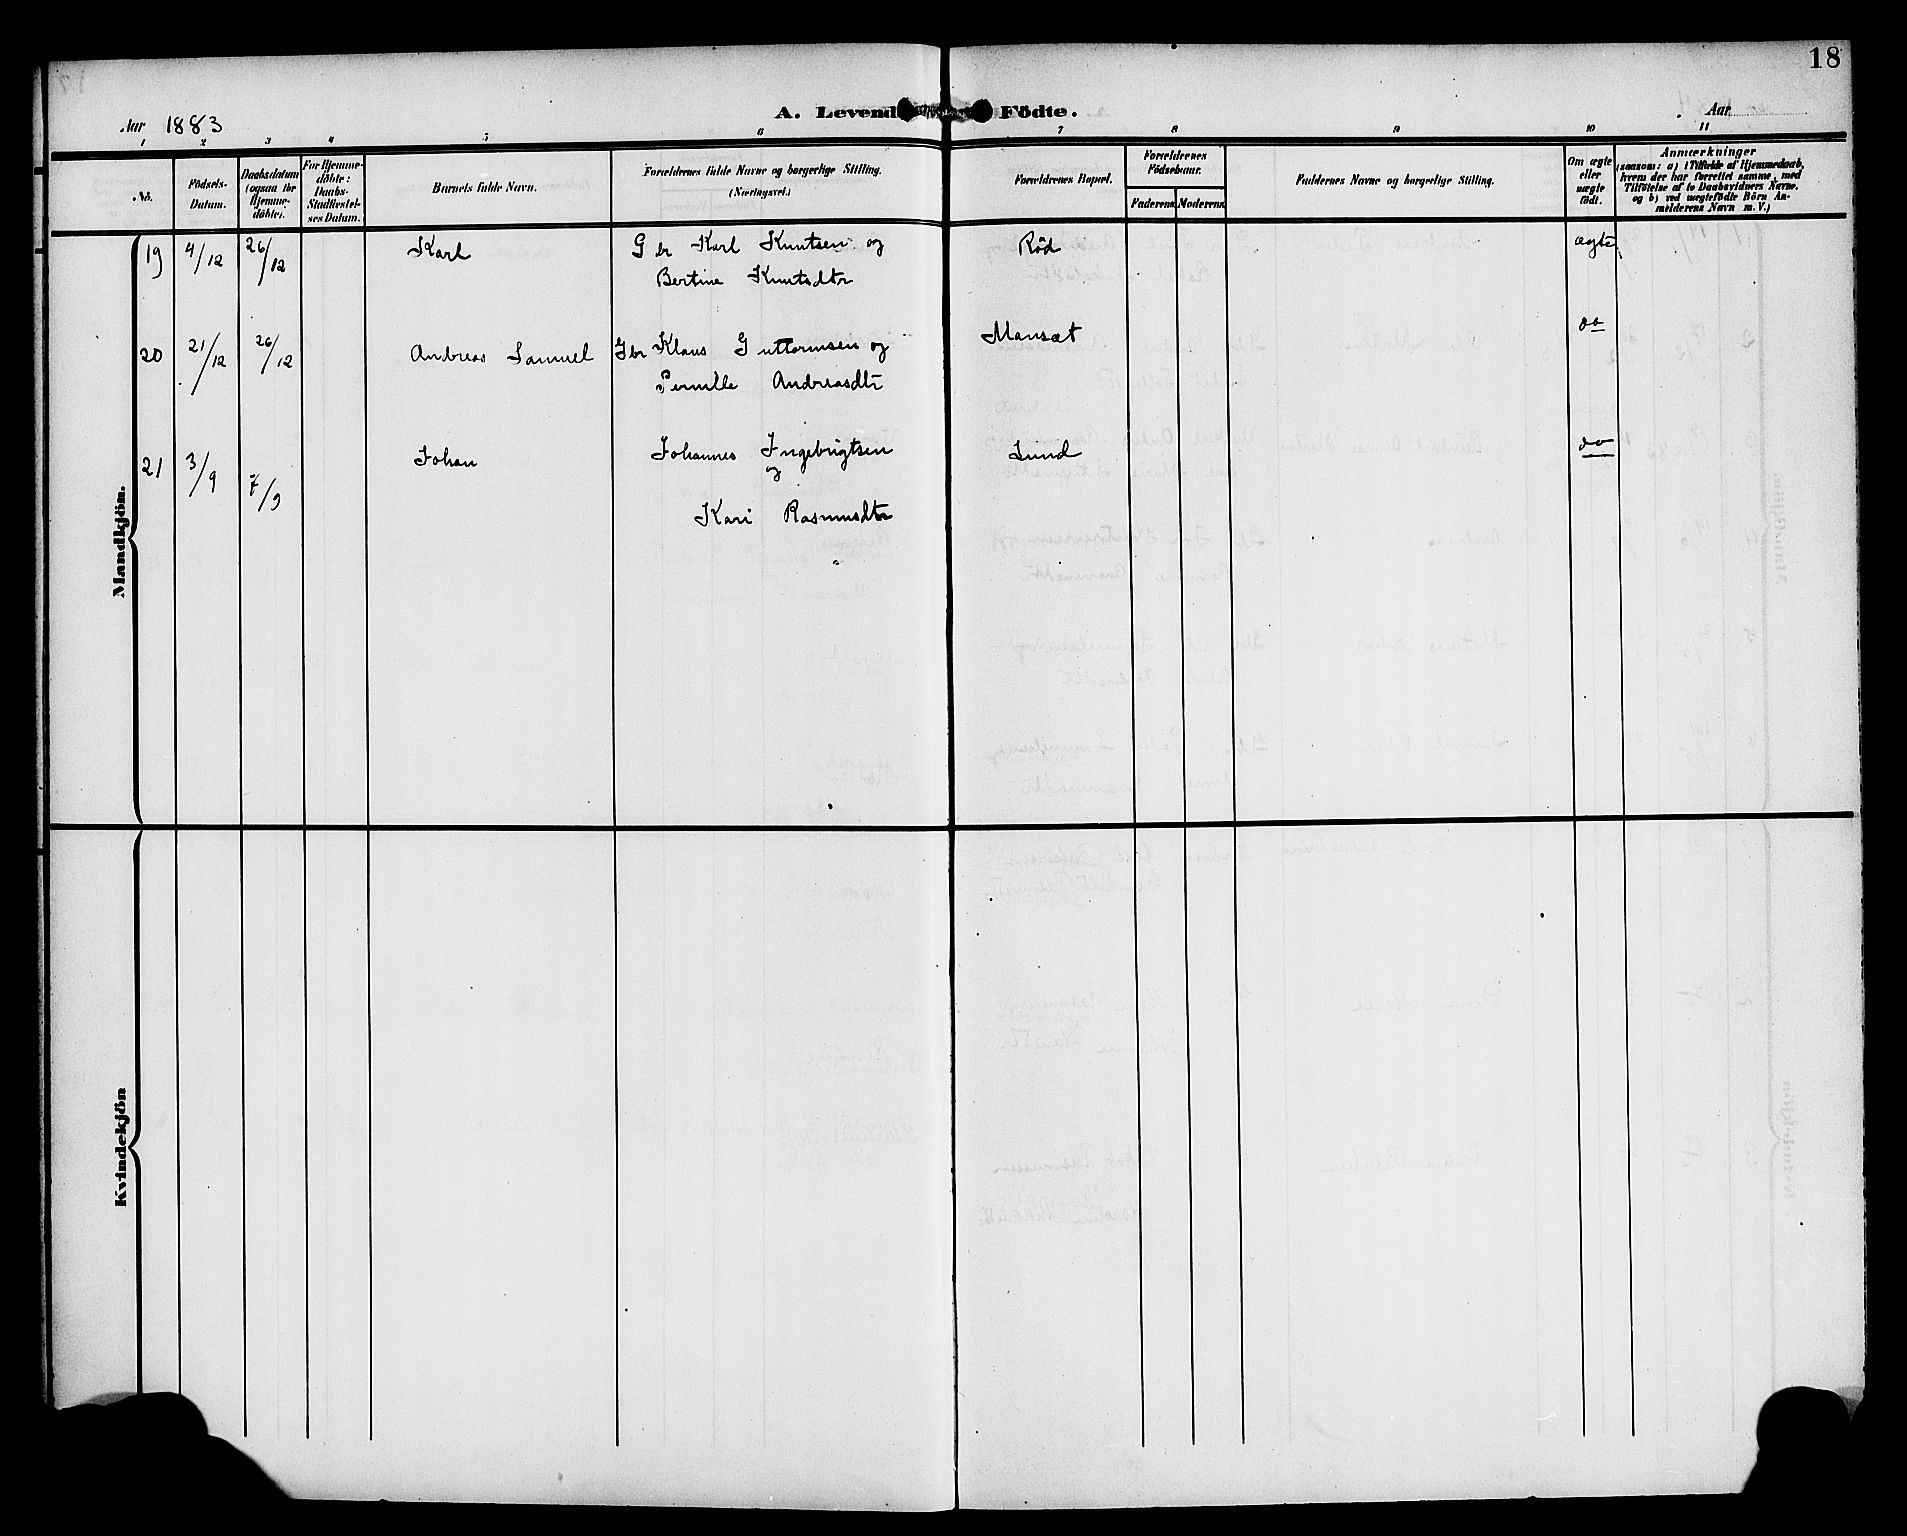 18
A. Levende Födte.
Aar 1883
Aar
1 2 3 4 5 6 7 8 9 10 11
No.
Födsels-
Datum.
Daabsdatum
(ogsaa for
Hjemme-
döbte).
For Hjemme-
döbte:
Daabs-
Stadfæstel-
ses Datum.
Barnets fulde Navn.
Forældrenes fulde Navne og borgerlige Stilling.
(Næringsvei.)
Forældrenes Bopæl.
Forældrenes
Födselsaar.
Faderens. Moderens.
Faddernes Navne og borgerlige Stilling.
Om ægte
eller
uægte
födt.
Anmærkninger
(saasom: a) i Tilfælde af Hjemmedaab,
hvem der har forrettet samme, med
Tilföielse af to Daabsvidners Navne.
og b) ved uægtefödte Börn An-
melderens Navn m. V.)
Mandkjön.
19 4/12 26/12 Karl Gbr Karl Knutsen og Rød ægte
Bertine Knutsdtr
20 21/12 26/12 Andreas Samuel Gbr Klaus Guttormsen og Mansæt do
Pernille Andreasdtr
21 3/9 7/9 Johan Johannes Ingebrigtsen Lund do
og
Kari Rasmusdtr
Kvindekjön